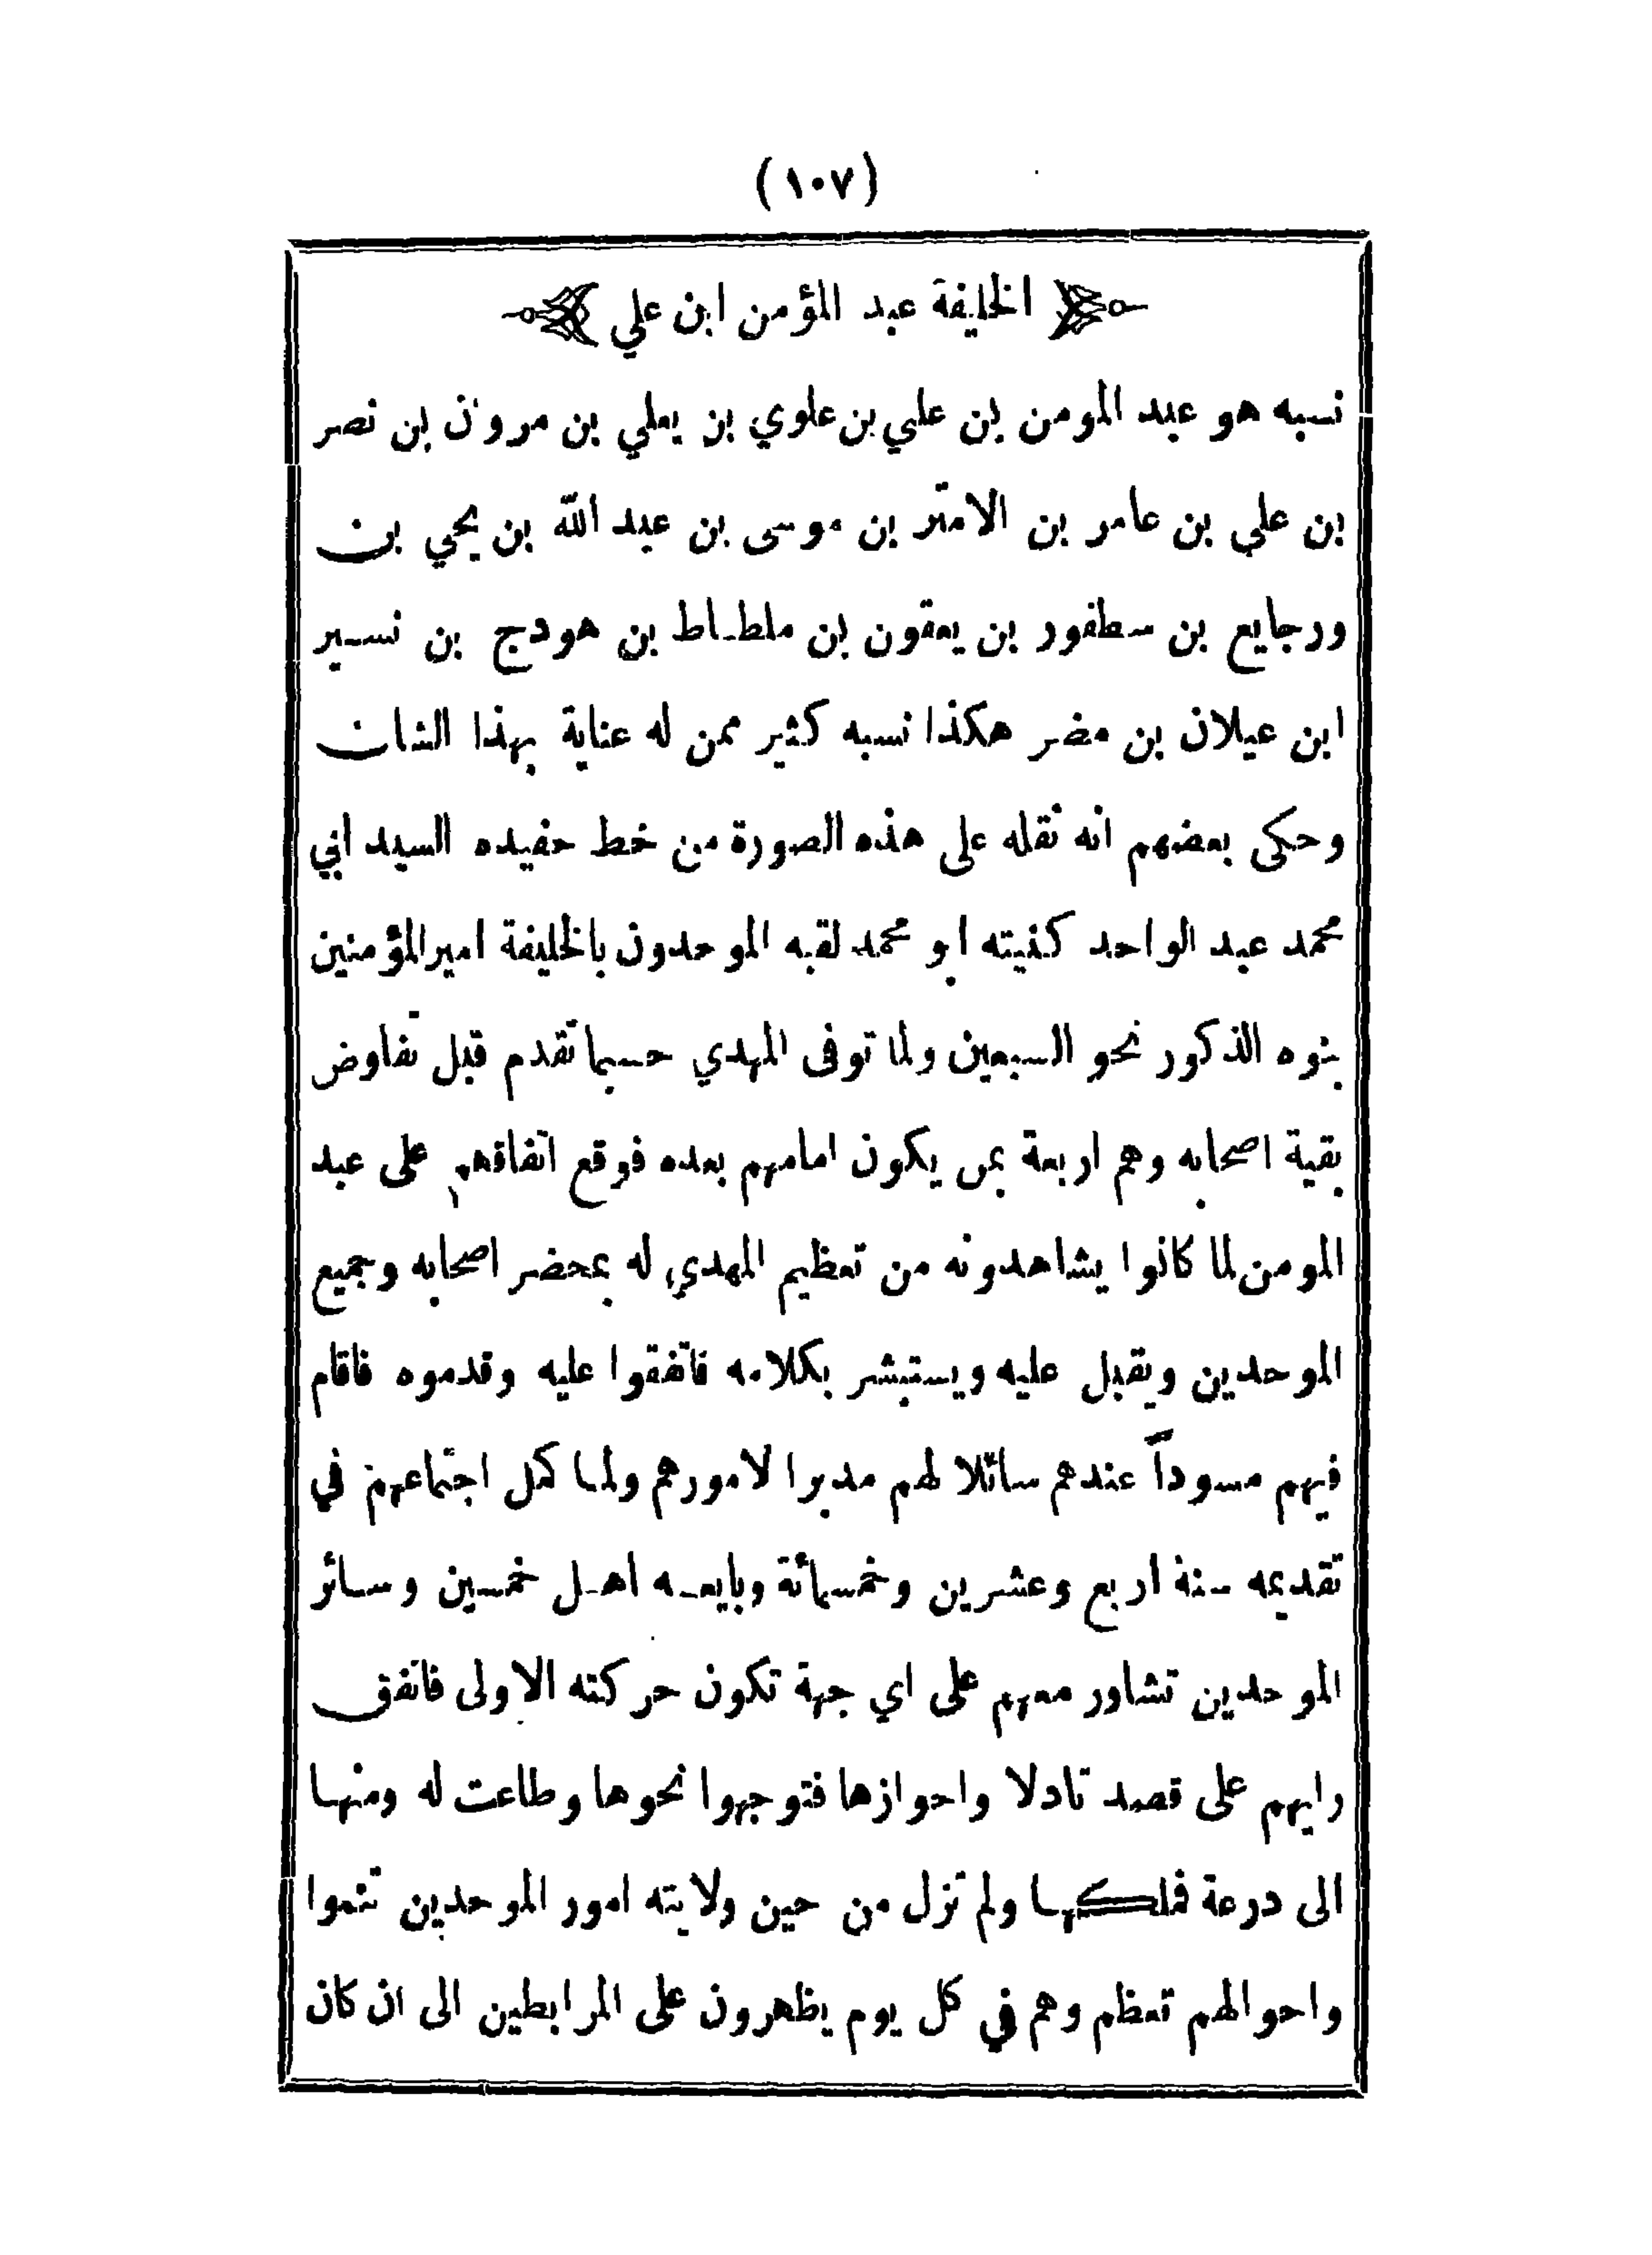 (١٠٧)
الخليفة عبد المؤمن ابن علي
نسبه هو عبد المومن بن علي بن علوي بن يعلي بن مروان بن نصر
بن علي بن عامر بن الامتر بن موسى بن عبد الله بن يحي بن
ورجايع بن سطفور بن يعقون بن ملطاط بن هودج بن نسير
ابن عيلان بن مضر هكذا نسبه كثير ممن له عناية بهذا الشان
وحكى بعضهم انه نقله على هذه الصورة من خط حفيده السيد ابي
محمد عبد الواحد كنيته ابو محمد لقبه الموحدون بالخليفة امير المؤمنين
بنوه الذكور نحو السبعين ولما توفى المهدي حسبما تقدم قبل تفاوض
بقية اصحابه وهم اربعة بمن يكون امامهم بعده فوقع اتفاقهم على عبد
المومن لما كانوا يشاهدونه من تعظيم المهدي له بمحضر اصحابه وجميع
الموحدين ويقبل عليه ويستبشر بكلامه فاتفقوا عليه وقدموه فاقام
فيهم مسوداً عندهم سائلا لهم مدبرا لامورهم ولما كمل اجتماعهم في
تقديمه سنة اربع وعشرين وخمسمائة وبايعه اهل خمسين وسائر
الموحدين تشاور معهم على اي جهة تكون حركته الاولى فاتفق
رايهم على قصد تادلا واحوازها فتوجهوا نحوها وطاعت له ومنها
الى درعة فملكها ولم تزل من حين ولايته امور الموحدين تنموا
واحوالهم تعظم وهم في كل يوم يظهرون على المرابطين الى ان كان